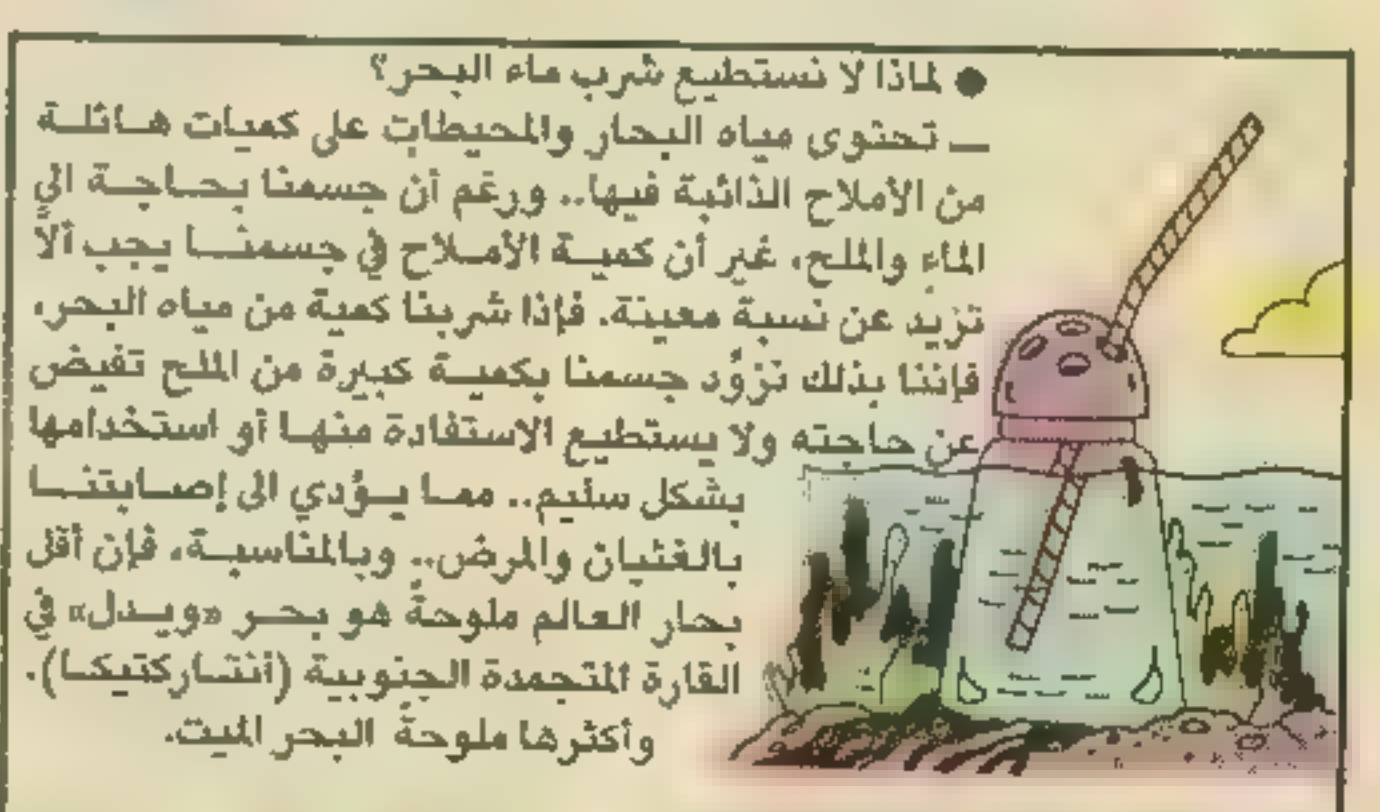 ● لماذا لا نستطيع شرب ماء البحر؟
ــ تحتوى مياه البحار والمحيطات على كميات هـائلـة
من الأملاح الذائبة فيها.. ورغم أن جسمنا بحـاجـة الى
الماء والملح، غير أن كميـة الأمـلاح في جسمنـا يجب ألاّ
تزيد عن نسبة معينة. فإذا شربنا كمية من مياه البحر،
فإننا بذلك نزوُّد جسمنا بكميـة كبيرة من الملح تفيض
عن حاجته ولا يستطيع الاستفادة منهـا أو استخدامها
بشكل سليم.. ممـا يـؤدي الى إصـابتنـا
بالغثيان والمرض.. وبـالمناسبـة، فإن أقل
بحار العالم ملوحةً هو بحـر «ويـدل» في
القارة المتجمدة الجنوبية (انتـاركتيكـا).
وأكثرها ملوحةً البحر الميت.